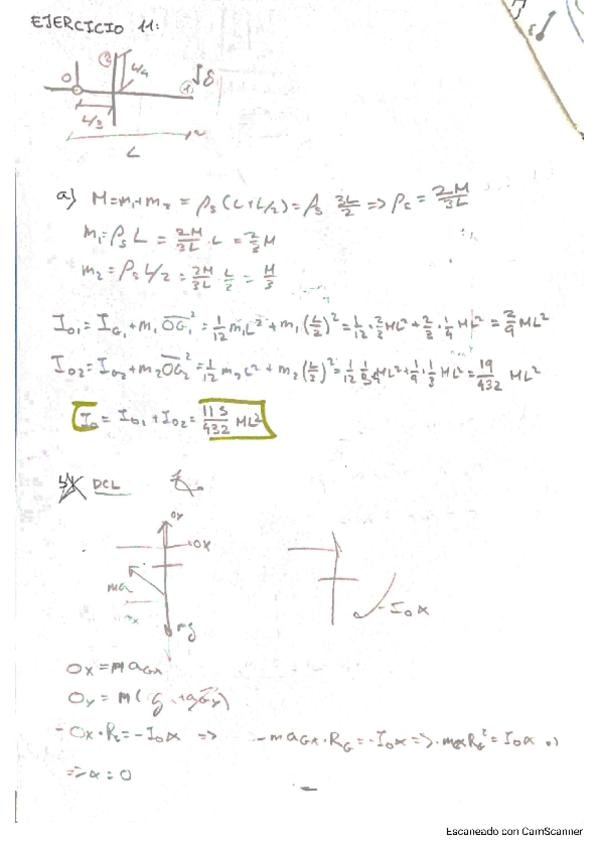 EJERCICIO 11:
O L/4 δ
L/3
L
a) M=m₁+m₂ = ρs (L+L/2) = ρs 3L/2 => ρs = 2M/3L
m₁=ρs L = 2M/3L · L = 2/3 M
m₂ = ρs L/2 = 2M/3L L/2 = M/3
I₀₁ = I_G₁ + m₁ OG₁² = 1/12 m₁L² + m₁ (L/2)² = 1/12 · 2/3 ML² + 2/3 · 1/4 ML² = 2/9 ML²
I₀₂ = I_G₂ + m₂ OG₂² = 1/12 m₂L² + m₂ (L/3)² = 1/12 ML² + 1/9 · 1/3 ML² = 19/432 ML²
I₀ = I₀₁ + I₀₂ = 115/432 ML²
DCL
Oy
Ox
ma
mg
-I₀α
Ox = M a_Gx
Oy = M(g + a_Gy)
-Ox·R_G = -I₀α => -m a_Gx · R_G = -I₀α => mαR_G² = I₀α
=> α = 0
Escaneado con CamScanner